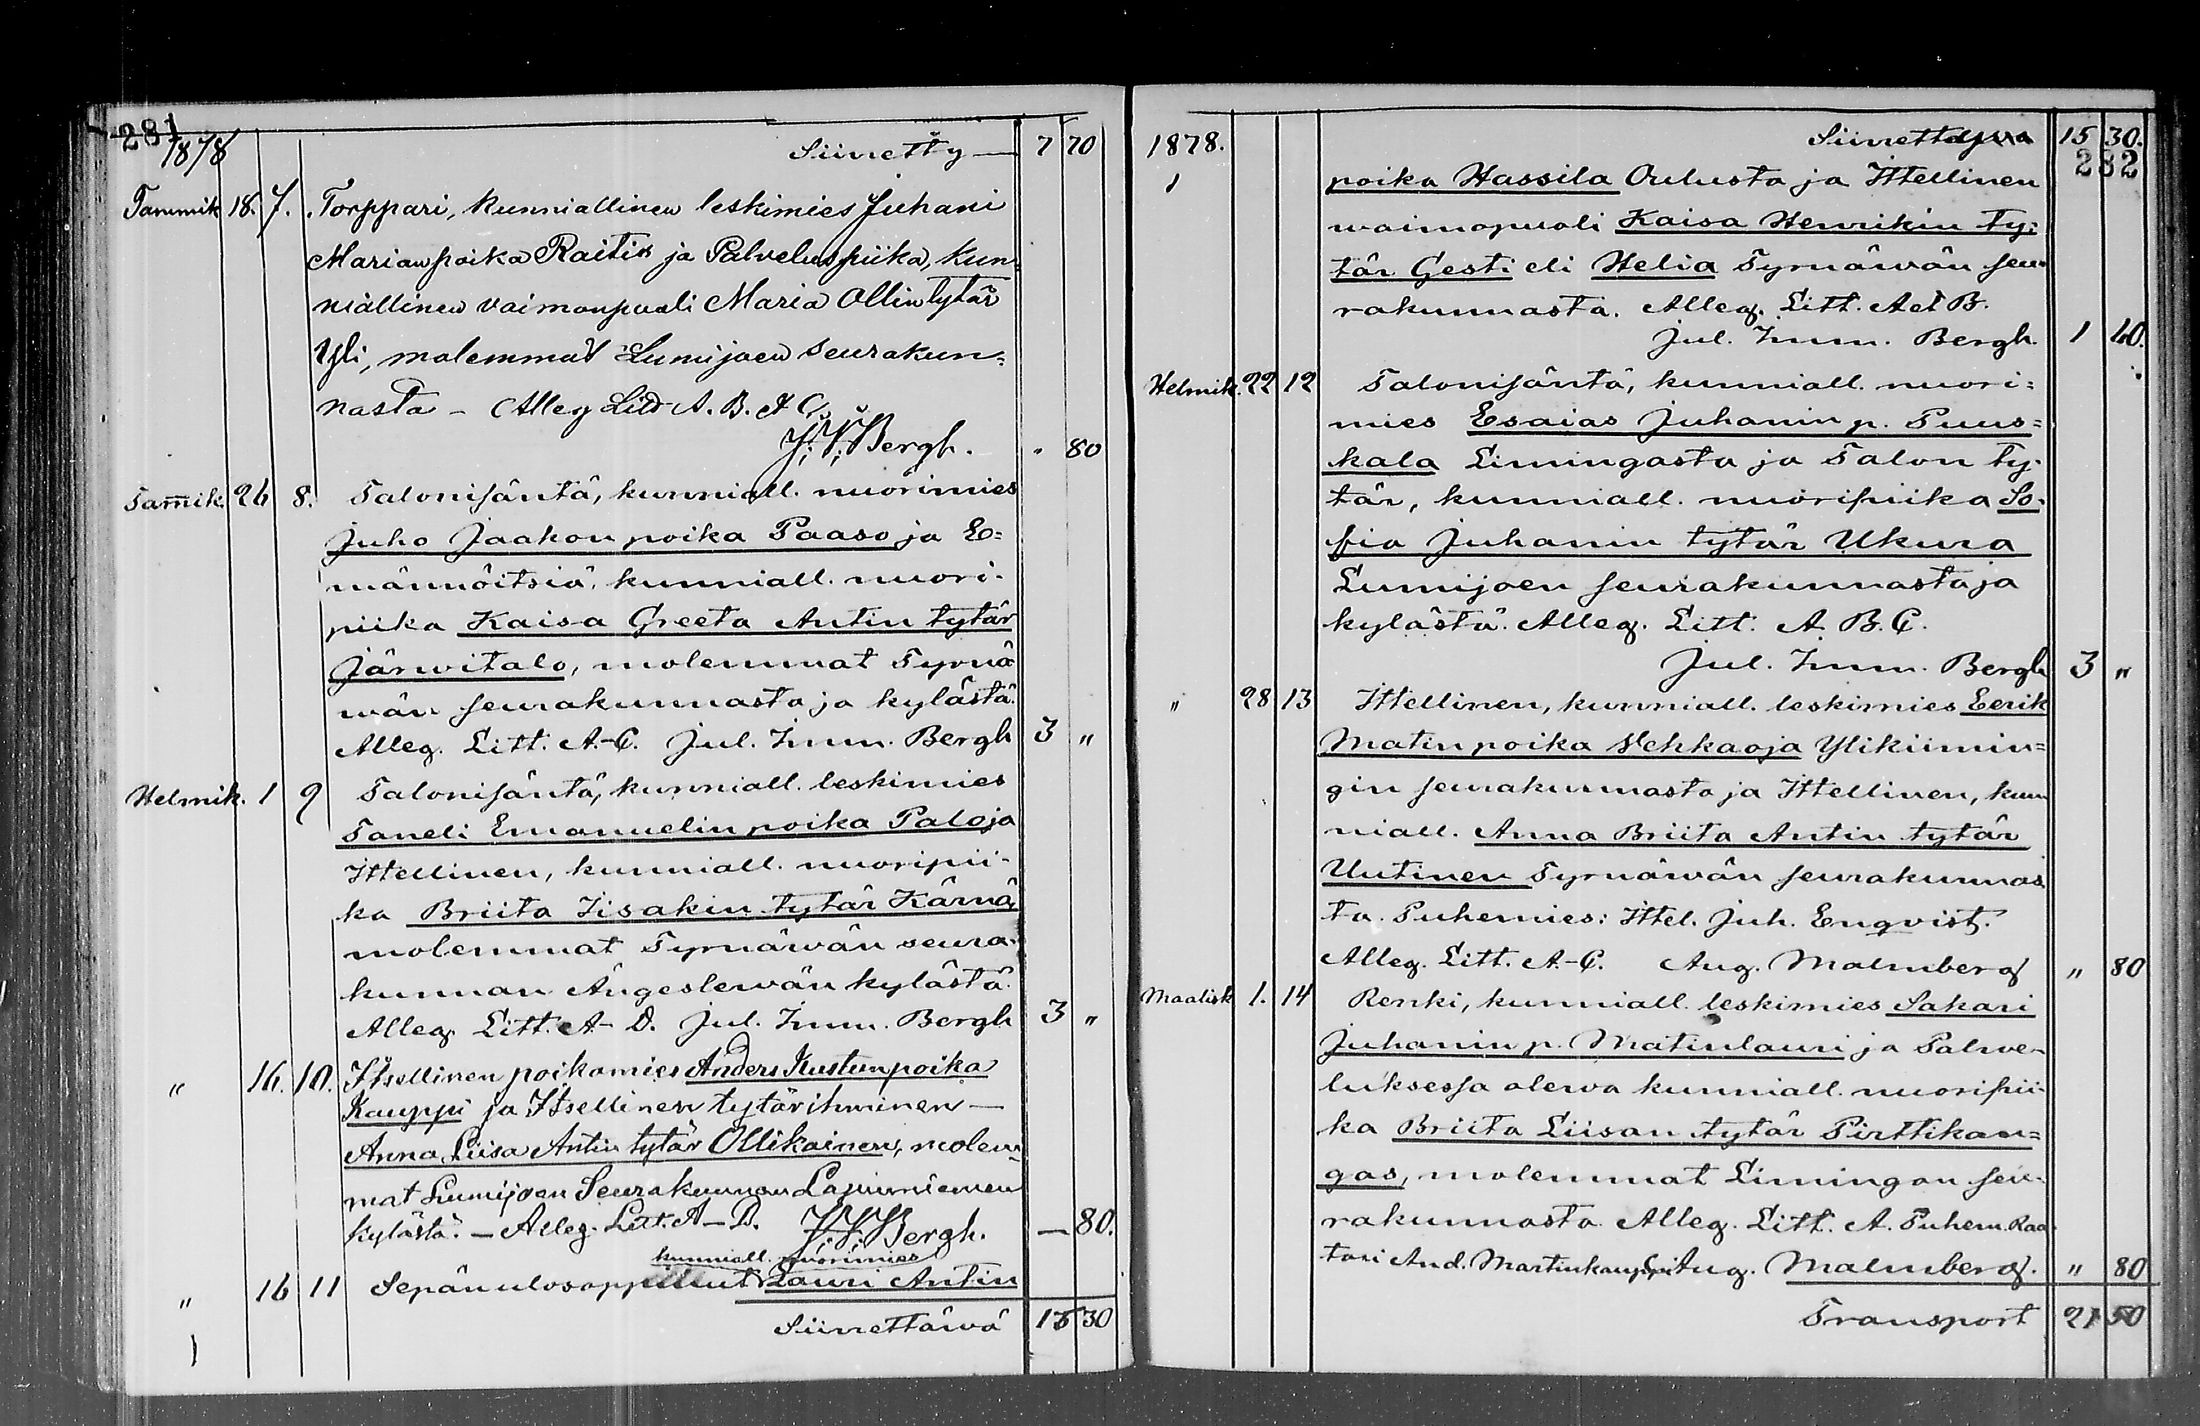 281
1878 Siirretty — 7 70
Tammik 18. 7. Torppari, kunniallinen leskimies Juhani
Marianpoika Raitik ja Palveluspiika, kun-
niallinen vaimonpuoli Maria Ollin tytär
Yli, molemmat Lumijoen seurakun=
nasta - Alleg Litt A. B. & C.
J. I. Bergh. " 80
Tam̄ik. 26 8. Talonisäntä, kunniall. nuorimies
Juho Jaakon poika Paaso ja E=
männöitsiä, kunniall. nuori-
piika Kaisa Greeta Antin tytär
Järwitalo, molemmat Tyrnä
wän seurakunnasta ja kylästä.
Alleg. Litt. A.-C. Jul. Imm. Bergh 3 "
Helmik. 1 9 Talonisäntä, kunniall. leskimies
Taneli Emanuelin poika Palo ja
Ittellinen, kunniall. nuoripii-
ka Briita Iisakin tytär Kärnä,
molemmat Tyrnäwän seura-
kunnan Ängeslewän kylästä.
Alleg. Litt. A- D. Jul. Imm. Bergh 3 "
" 16. 10. Itsellinen poikamies Anders Kustunpoika
Kauppi ja Itsellinen tytärihminen —
Anna Liisa Antin tytär Ollikainen, molem-
mat Lumijoen Seurakunnan Lapinniemen
kylästä. — Alleg. Litt. A — D. J. I. Bergh. — 80.
kunniall. nuorimies
" 16 11 Sepän ulosoppinut Lauri Antin
Siirrettävä 15 30
1878. Siirrettävä 15 30.
282
poika Hassila Oulusta ja Ittellinen
waimopuoli Kaisa Henrikin ty-
tär Gesti eli Helia Tyrnäwän seu-
rakunnasta. Alleg. Litt. A et B.
Jul. Imm. Bergh. 1 40.
Helmik. 22 12 Talonisäntä, kunniall. nuori=
mies Esaias Juhanin p. Puus=
kala Limingasta ja Talon ty-
tär, kunniall. nuoripiika So-
fia Juhanin tytär Ukura
Lumijoen seurakunnasta ja
kylästä. Alleg. Litt. A. B. C.
Jul. Imm. Bergh 3 "
" 28 13 Ittellinen, kunniall. leskimies Eerik
Matin poika Vehkaoja Ylikiimin=
gin seurakunnasta ja Ittellinen, kun
niall. Anna Briita Antin tytär
Uutinen Tyrnäwän seurakunnas
ta. Puhemies: Ittel. Juh. Enqvist.
Alleg. Litt. A.-C. Aug. Malmberg " 80
Maalisk 1. 14 Renki, kunniall. leskimies Sakari
Juhanin p. Matinlauri ja Palwe-
luksessa olewa kunniall. nuoripii-
ka Briita Liisan tytär Pirttikan=
gas, molemmat Limingan seu-
rakunnasta. Alleg. Litt. A. Puhem. Raa
tari And. Martinkauppi Aug. Malmberg. " 80
Transport 21 50